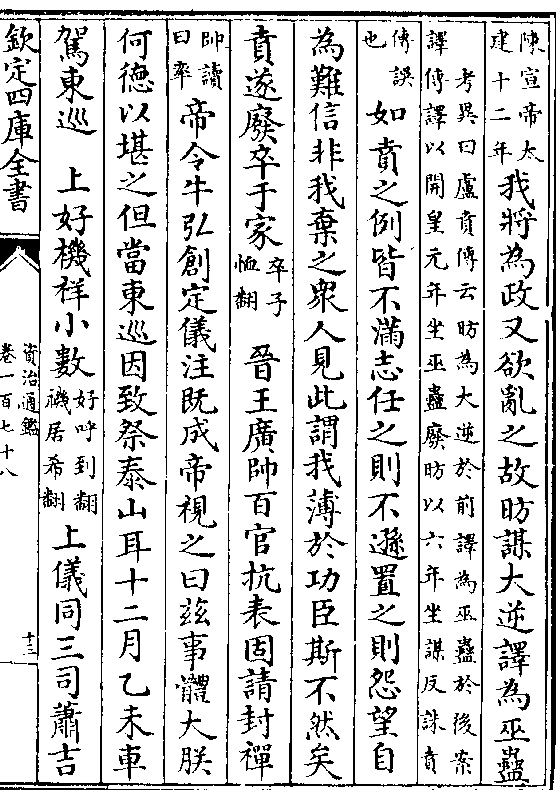 陳宣帝太
建十二年
我將為政又欲亂之故昉謀大逆譯為巫蠱
考異曰盧賁傳云昉為大逆於前譯為巫蠱於後案
譯傳譯以開皇元年坐巫蠱廢昉以六年坐謀反誅賁
傳誤
也
如賁之例皆不滿志任之則不遜置之則怨望自
為難信非我棄之衆人見此謂我薄於功臣斯不然矣
賁遂廢卒于家
卒子
恤翻
晉王廣帥百官抗表固請封禪
帥讀
曰率
帝令牛弘創定儀注既成帝視之曰兹事體大朕
何德以堪之但當東巡因致祭泰山耳十二月乙未車
駕東巡 上好機祥小數
好呼到翻
禨居希翻
上儀同三司蕭吉
欽定四庫全書
資治通鑑
卷一百七十八
十三